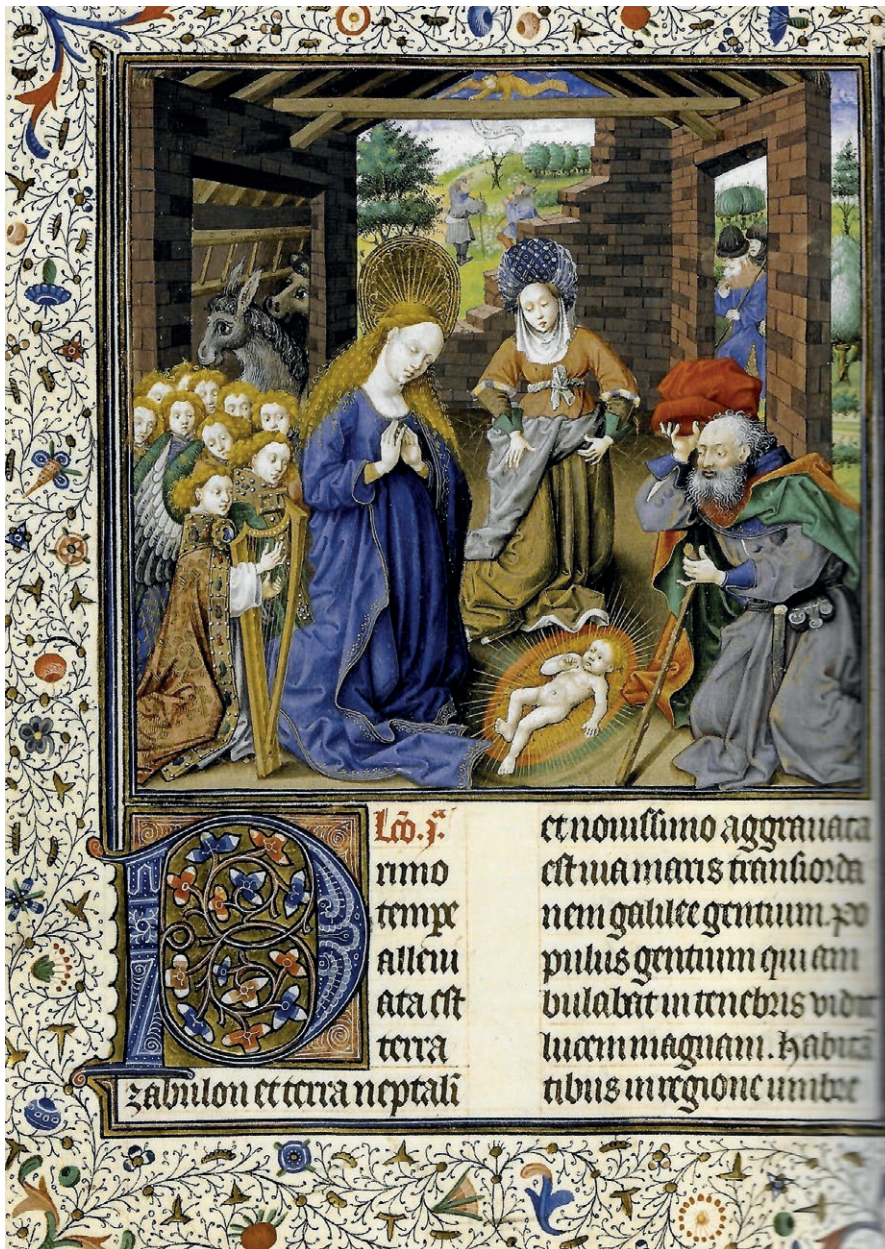 Lcō. jª.
Primo
tempe
alleui
ata est
terra
zabulon et terra neptali
et nouissimo aggrauata
est uia maris transiorda
nem galilee gentium. po
pulus gentium qui am
bulabat in tenebris vidit
lucem magnam. habitā
tibus in regione umbre